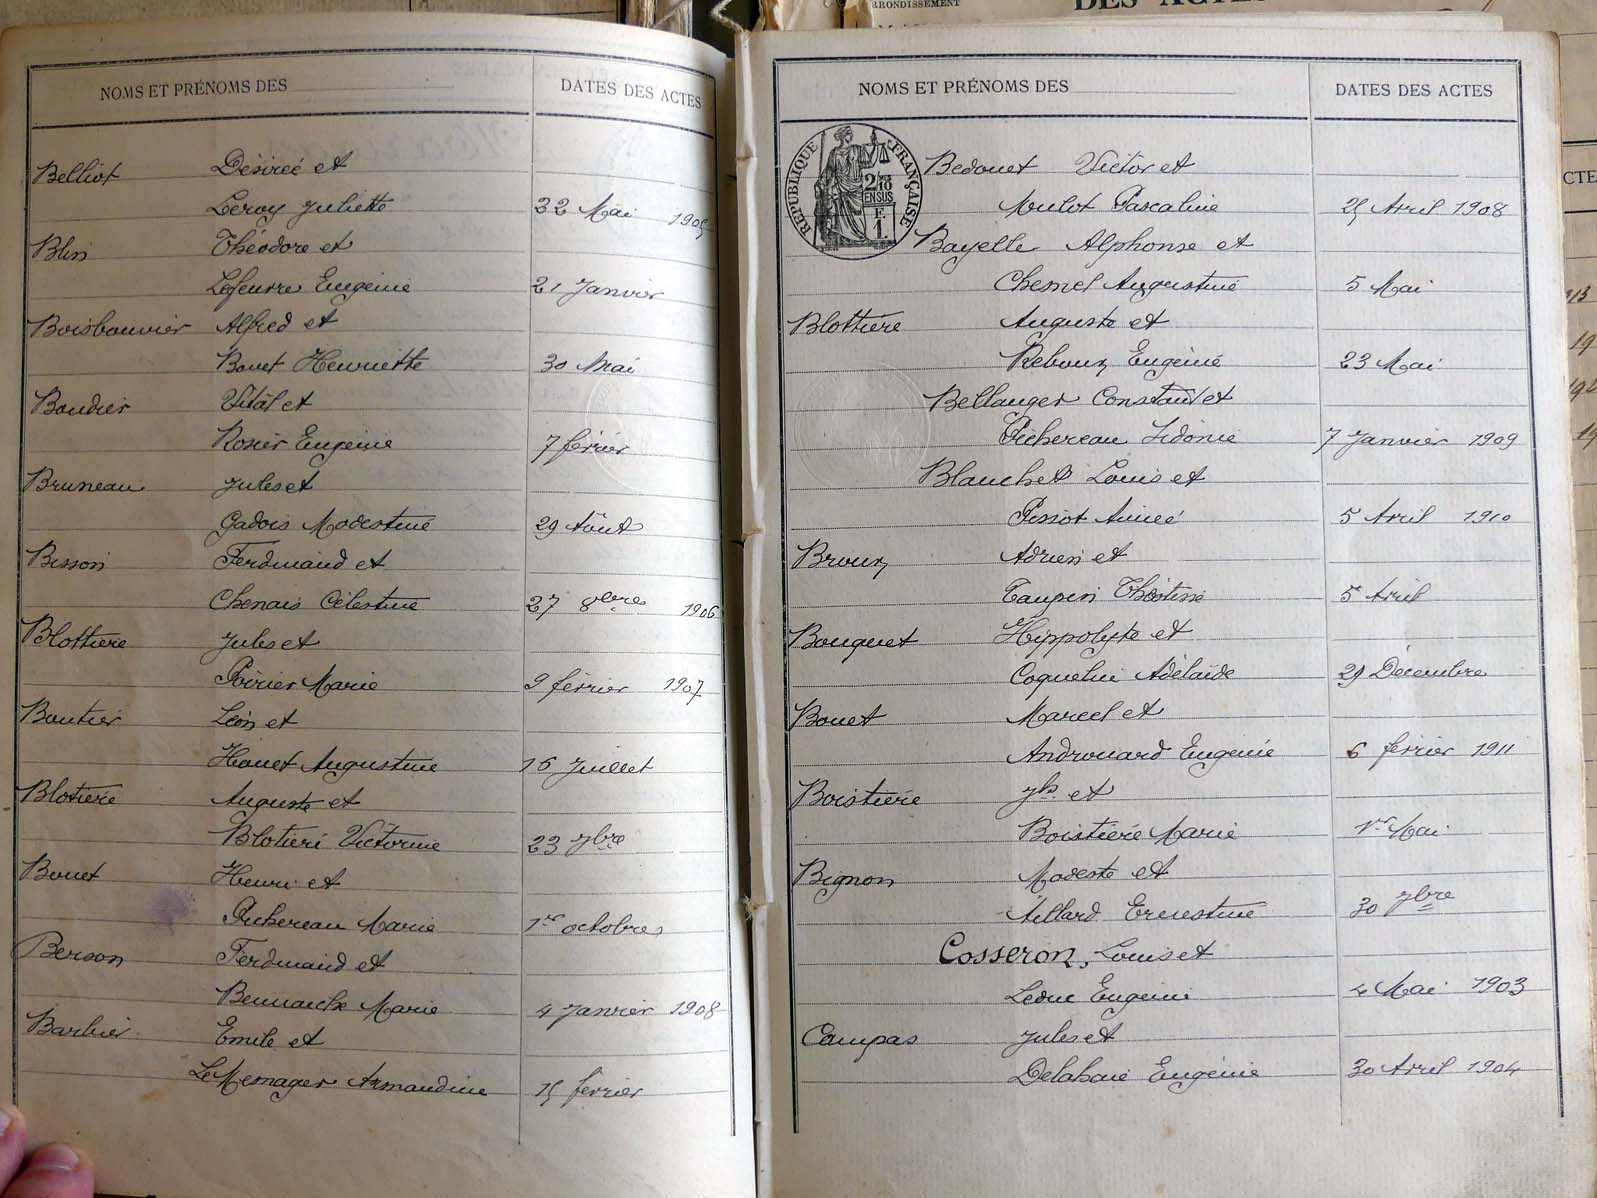 RRONDISSEMENT
DES ACTES
NOMS ET PRÉNOMS DES
DATES DES ACTES
Belliot Désireé et
Leroy Juliette 22 Mai 1905
Blin Théodore et
Lefeuvre Eugénie 21 Janvier
Boisbouvier Alfred et
Bouet Henriette 30 Mai
Boudier Vital et
Rosier Eugénie 7 février
Bruneau Jules et
Gadois Modestine 29 Août
Besson Ferdinand et
Chenais Célestine 27 8bres 1906
Blottière Jules et
Poirier Marie 9 février 1907
Boutier Léon et
Houet Augustine 15 Juillet
Blotière Auguste et
Blotière Victorine 23 7bre
Bouet Henri et
Pichereau Marie 1er octobres
Berson Ferdinand et
Marie 4 Janvier 1908
Barbier Emile et
LeMesnager Armandine 15 février
NOMS ET PRÉNOMS DES
DATES DES ACTES
RÉPUBLIQUE FRANÇAISE
2/10 EN SUS
F.
1.
Bedouet Victor et
Mulot Pascaline 25 Avril 1908
Bayelle Alphonse et
Chesnel Augustine 5 Mai
Blottière Auguste et
Reboux Eugénie 23 Mai
Bellanger Constant et
Pichereau Sidonie 7 Janvier 1909
Blanchet Louis et
Pissot Aimeé 5 Avril 1910
Broux Adrien et
Taupin 5 Avril
Bouquet Hippolyte et
Coquelin Adélaïde 29 Décembre
Bouet Marcel et
Androuard Eugénie 6 février 1911
Boistière Jh et
Boistière Marie 1er Mai
Bignon Modeste et
Aillard Ernestine 30 7bre
Cosseron, Louis et
Leduc Eugénie 4 Mai 1903
Compas Jules et
Delahaie Eugénie 30 Avril 1904
CTE